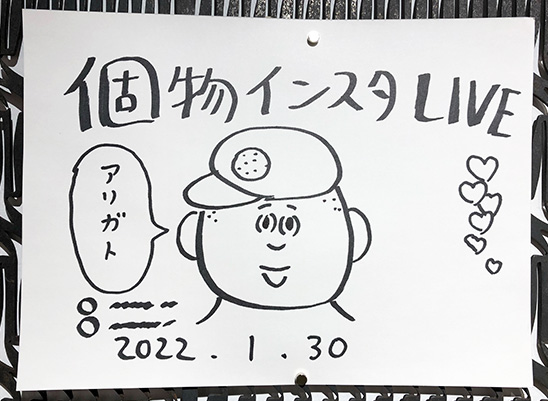 個物インスタLIVE
アリガト
2022.1.30